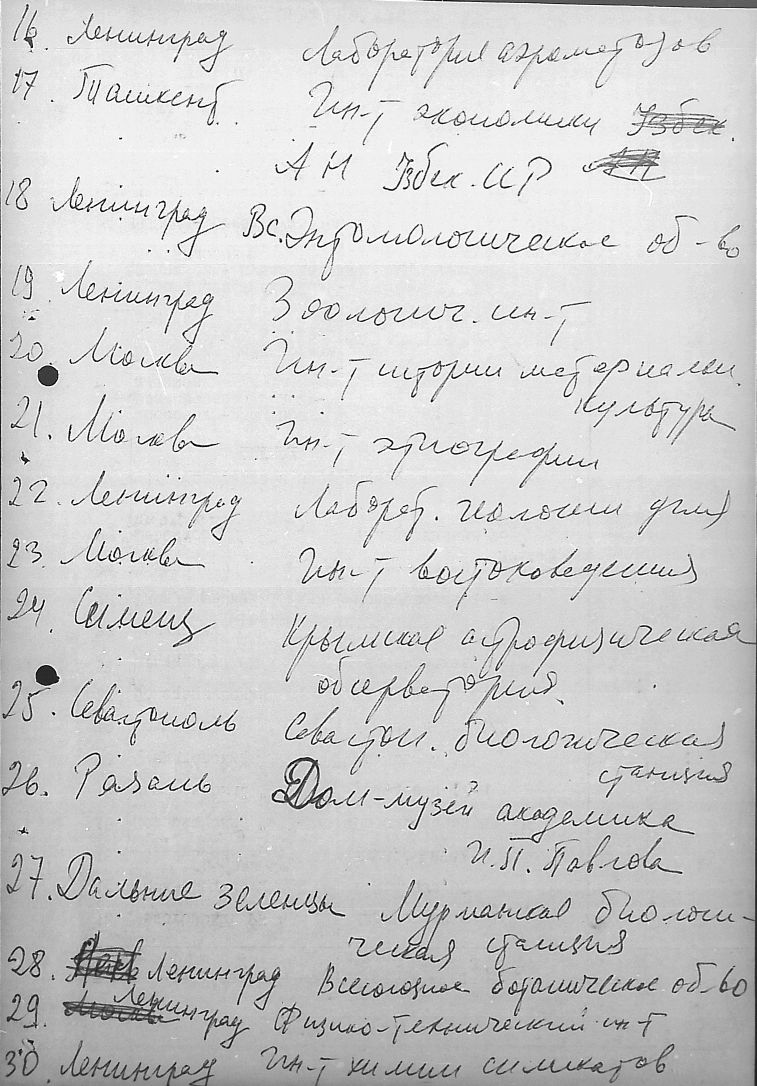 16. Ленинград Лаборатория аэрометодов
17. Ташкент Ин-т экономики Узбек.
АН Узбек. ССР АН
18 Ленинград Вс. Энтомологическое об-во
19 Ленинград Зоологич. ин-т
20. Москва Ин-т истории материальн.
культура
21. Москва Ин-т этнографии
22. Ленинград Лаборат. геологии угля
23. Москва Ин-т востоковедения
24. Симеиз Крымская астрофизическая
обсерватория.
25. Севастополь Севастоп. биологическая
станция
26. Рязань Дом-музей академика
И.П. Павлова
27. Дальние Зеленцы Мурманская биологи-
ческая станция
28. Ленинград Всесоюзное ботаническое об-во
29. Москва Ленинград Физико-технический ин-т
30. Ленинград Ин-т химии силикатов